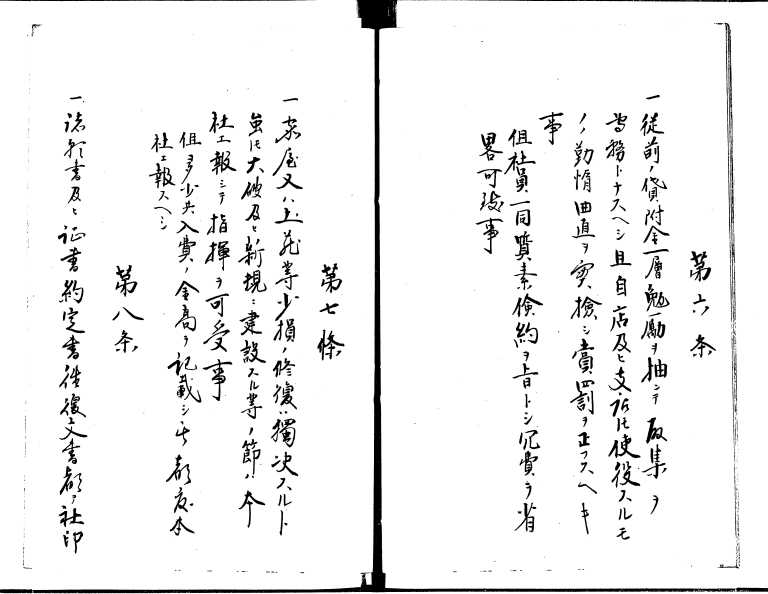 第六条
一従前ノ貸附金一層勉励ヲ抽シテ取集ヲ
当務トナスヘシ且自店及ヒ支店ニ使役スルモ
ノヽ勤惰曲直ヲ実検シ賞罰ヲ正フスヘキ
事
但社員一同質素倹約ヲ旨トシ冗費ヲ省
畧可致事
第七條
一家屋又ハ土蔵等少損ノ修復ハ獨決スルト
虽モ大破及ヒ新規ニ建設スル等ノ節ハ本
社エ報シテ指揮ヲ可受事
但多少共入費ノ金高ヲ記載シ其都度本
社エ報スヘシ
第八条
一諸願書及ヒ証書約定書往復文書都テ社印